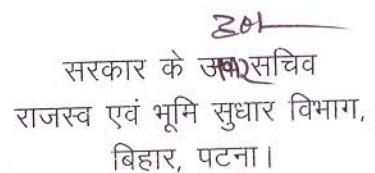 सरकार के सचिव
राजस्व एवं भूमि सुधार विभाग,
बिहार, पटना।